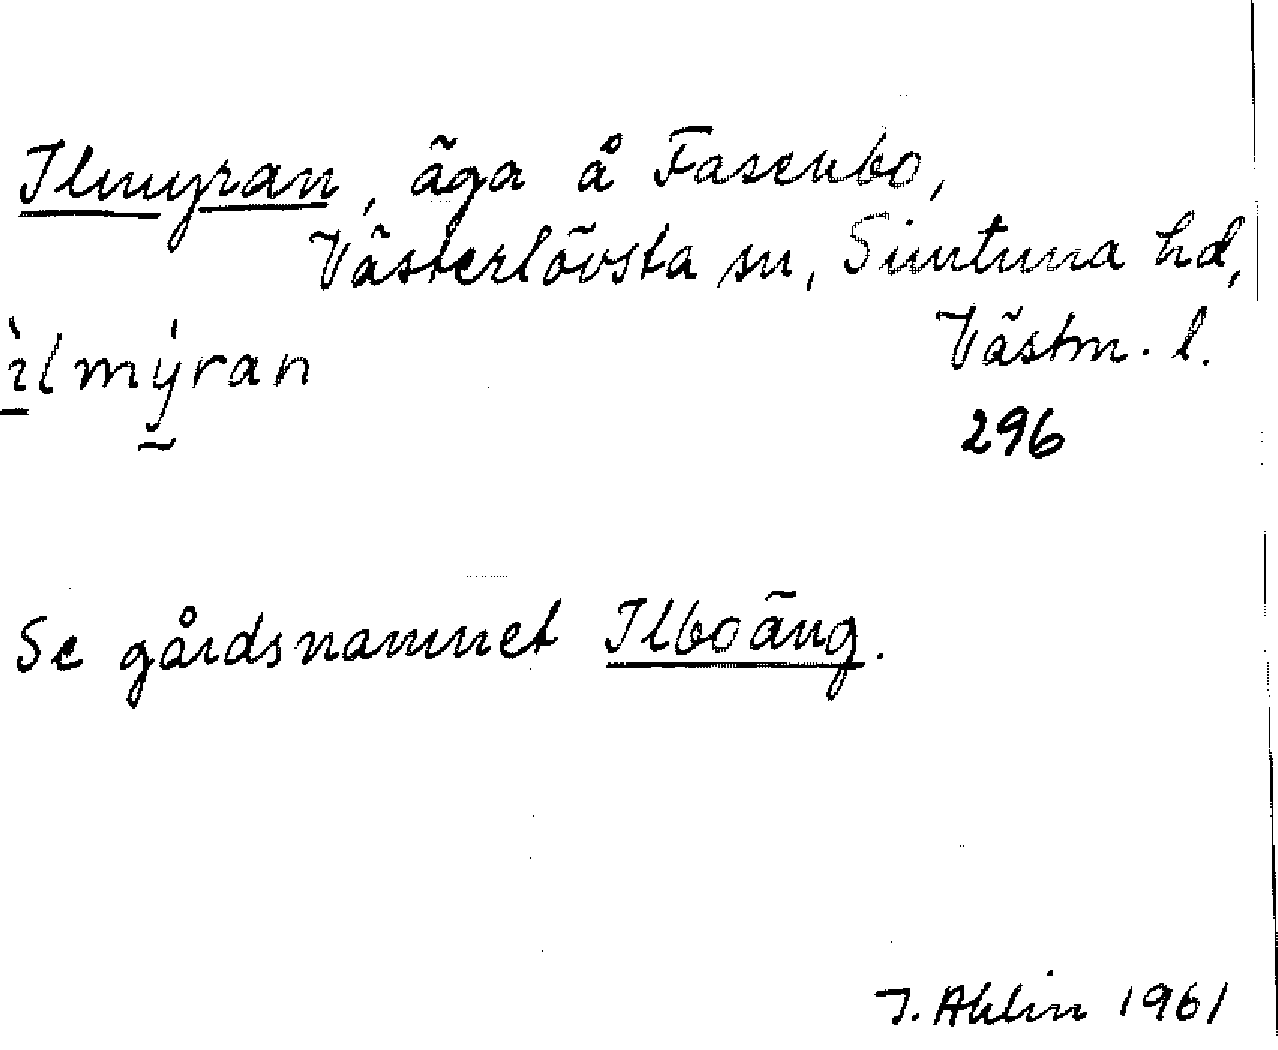 Ilmyran, äga å Fasenbo,
Västerlövsta sn, Simtuna hd,
Västm. l.
ìlmýran
296
Se gårdsnamnet Ilboäng.
I. Ahlin 1961